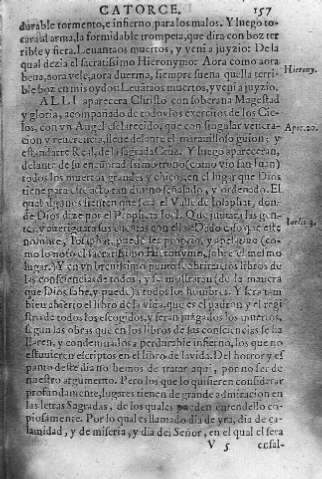 CATORCE. 157
durable tormento, e infierno para los malos. Y luego to-
cara al arma, la formidable trompeta, que dira con boz ter
rible y fiera. Leuantaos muertos, y veni a juyzio: De la
qual dezia el sacratissimo Hieronymo: Aora como aora
beua, aora vele, aora duerma, siempre suena quella terri-
ble boz en mis oydos: Leuataos muertos, y veni a juyzio.
Hierony.
ALLI aparecera Christo con soberana Magestad
y gloria, acompañado de todos los exercitos de los Cie-
los, con vn Angel esclarecido, que con singular venera-
cion y reuerencia, lleue delante el marauilloso guion; y
estandarte Real, de la sagrada Cruz. Y luego apareceran,
Apoc. 20.
delante de su trono (como vio san Iuan)
todos los muertos grandes y chicos, en el lugar que Dios
tiene para este acto tan señalado, y ordenado. El
qual algunos sienten que sera el Valle de Iosaphat, don-
de Dios dize por el Propheta Ioel. Que juntara las gen-
tes, y aueriguara sus cuentas con el Dado caso que este
nombre, Iosaphat, puede ser proprio, y apelatiuo (co-
mo lo noto el sacratissimo Hieronymo, sobre el mesmo
lugar.) Y en vn breuissimo punto se abriran los libros de
las consciencias de todos, y se mostraran (de la manera
que Dios sabe, y puede) a todos los hombres. Y sera tam
bien abierto el libro de la vida, que es el padron y el regi
stro de todos los escogidos, y seran juzgados los muertos,
segun las obras que en los libros de las consciencias se ha
llaren, y condenados a perdurable infierno, los que no
estuuieren escriptos en el libro de la vida. Del horror y es
panto deste dia no hemos de tratar aqui, por no ser de
nuestro argumento. Pero los que lo quisieren considerar
profundamente, lugares tienen de grande admiracion en
las letras Sagradas, de los quales pueden entendello co-
piosamente. Por lo qual es llamado dia de yra, dia de ca-
lamidad, y de miseria, y dia del Señor, en el qual el sera
V 5